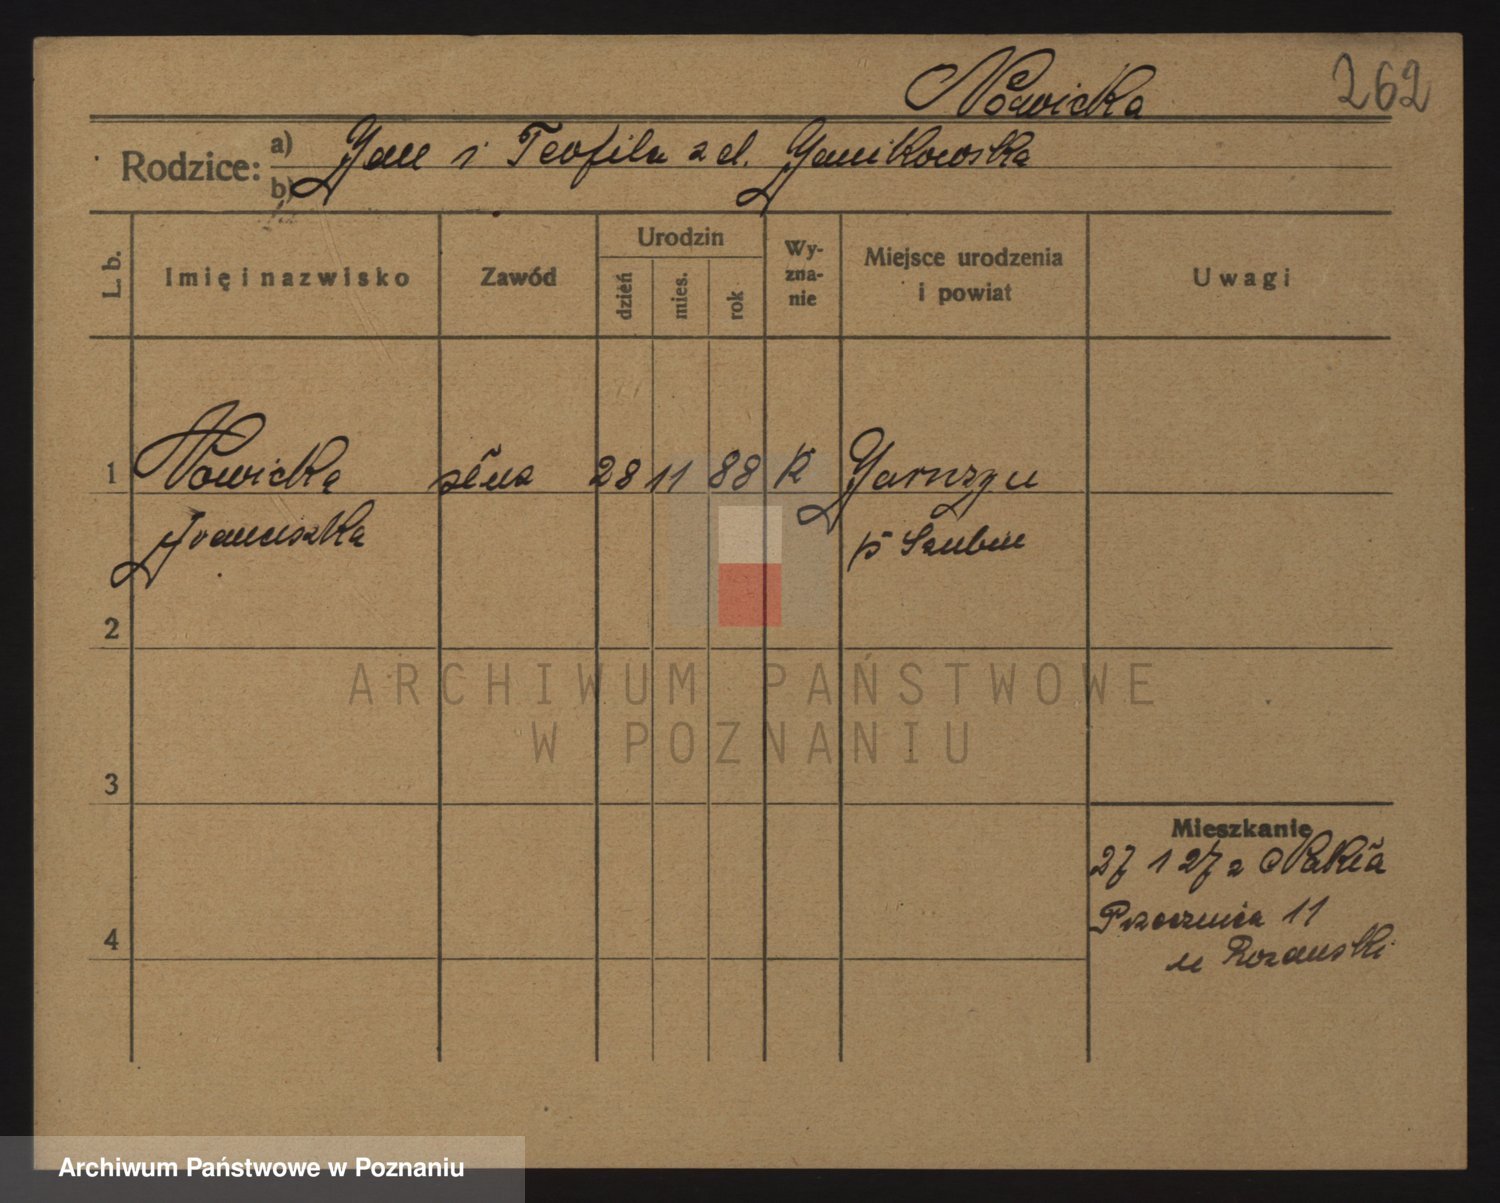 Nowicka 262
Rodzice: a) Jan i Teofila z d. Janikowska
b)
L. b. Imię i nazwisko Zawód Urodzin dzień mies. rok Wyznanie Miejsce urodzenia i powiat Uwagi
1 Nowicka 28 11 88 K Jarużyn
Franciszka p Szubin
2
3
Mieszkanie
27 1 27 z Nakła
Poprzeczna 11
u Rozanski
4
ARCHIWUM PAŃSTWOWE
W POZNANIU
Archiwum Państwowe w Poznaniu